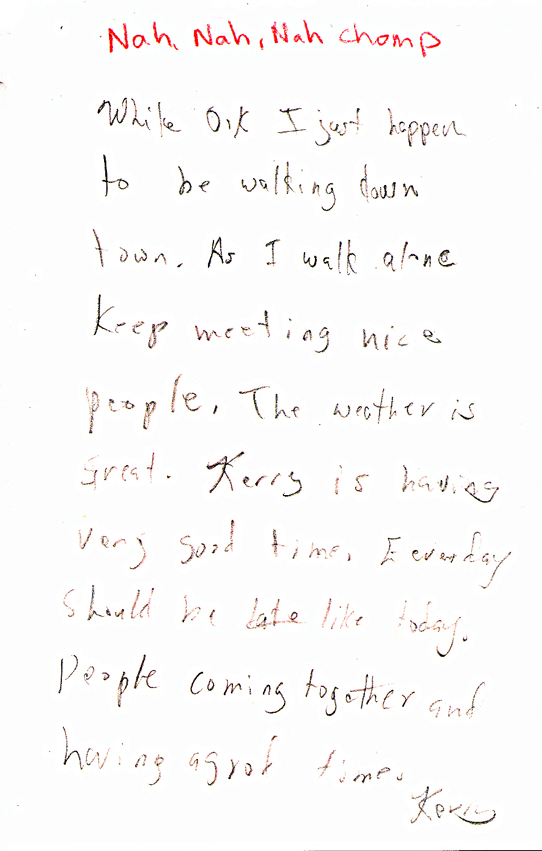 Nah, Nah, Nah chomp
While O.K I just happen
to be walking down
town. As I walk alone
Keep meeting nice
people. The weather is
Great. Kerry is having
very good time. E everday
should be late like today.
People coming together and
having a time.
Kerry